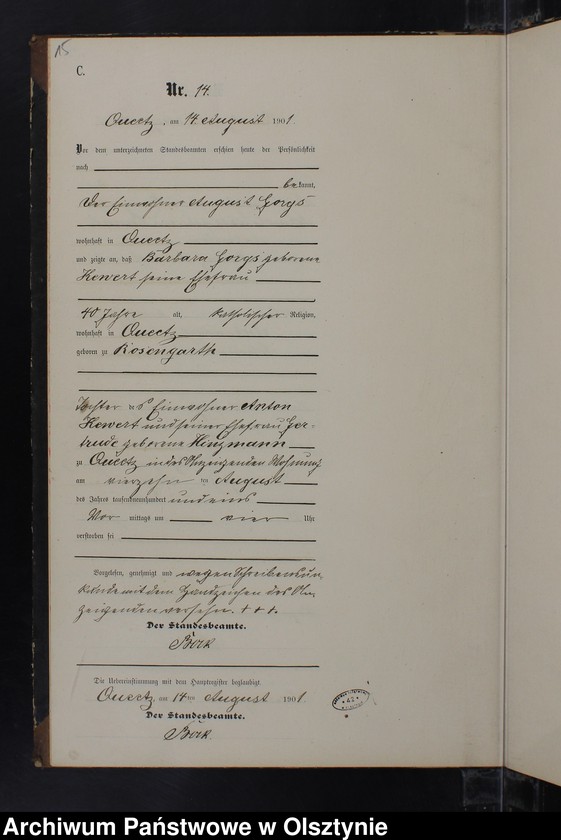 15
C.
Nr. 14.
Queetz, am 14 August 1901.
Vor dem unterzeichneten Standesbeamten erschien heute der Persönlichkeit
nach
bekannt,
Der Einwohner August Gorgs
wohnhaft in Queetz
und zeigte an, daß Barbara Gorgs geborene
Kewert seine Ehefrau
40 Jahre alt, katholischer Religion,
wohnhaft in Queetz
geboren zu Rosengarth
Tochter des Einwohner Anton
Kewert und seiner Ehefrau Ger-
trude geborene Hinzmann
zu Queetz in des Anzeigenden Wohnung
am vierzehn ten August
des Jahres tausend neunhundert und eins
Vor mittags um vier Uhr
verstorben sei
Vorgelesen, genehmigt und wegen Schreibensun-
kunde mit dem Handzeichen des An-
zeigenden versehn. + + +.
Der Standesbeamte.
Bork
Die Uebereinstimmung mit dem Hauptregister beglaubigt.
Queetz, am 14ten August 1901.
Der Standesbeamte.
Bork.
Archiwum Państwowe w Olsztynie